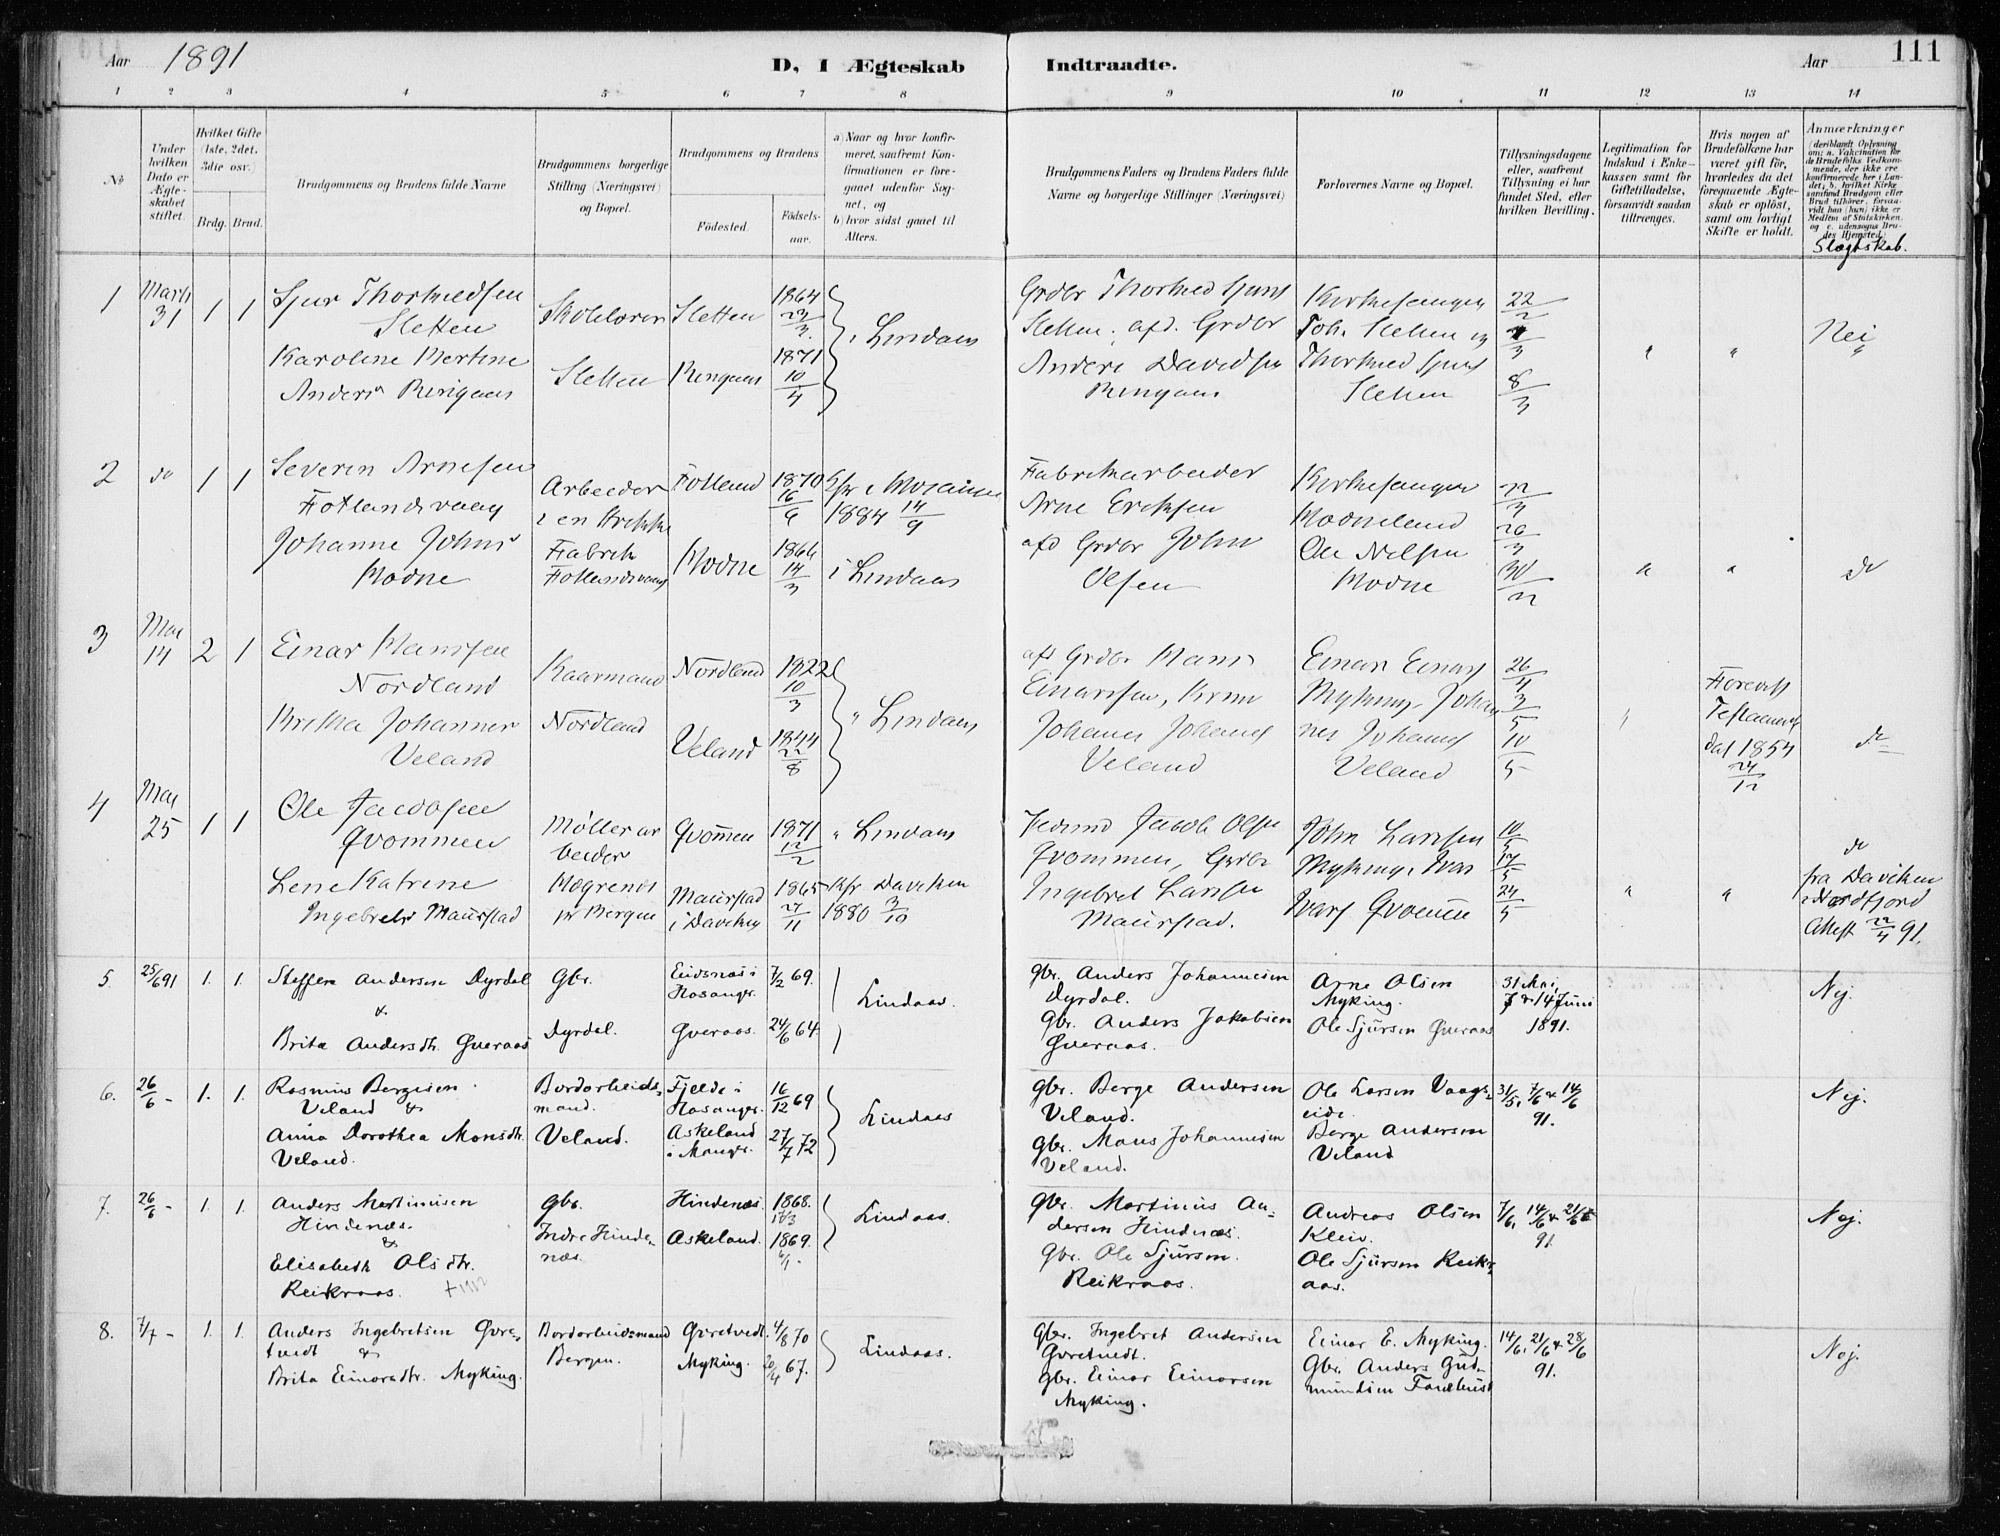 Aar 1891
D, I Ægteskab
Indtraadte.
Aar
111
1 2 3 4 5 6 7 8 9 10 11 12 13 14
No
Under hvilken Dato er Ægteskabet stiftet.
Hvilket Gifte (1ste, 2det, 3die osv.)
Brdg. Brud.
Brudgommens og Brudens fulde Navne
Brudgommens borgerlige Stilling (Næringsvei) og Bopæl.
Brudgommens og Brudens
Fødested.
Fødselsaar.
a) Naar og hvor konfirmeret, saafremt Konfirmationen er foregaaet udenfor Sognet, og
b) hvor sidst gaaet til Alters.
Brudgommens Faders og Brudens Faders fulde Navne og borgerlige Stillinger (Næringsvei)
Forlovernes Navne og Bopæl.
Tillysningsdagene eller, saafremt Tillysning ei har fundet Sted, efter hvilken Bevilling.
Legitimation for Indskud i Enkekassen samt for Giftetilladelse, forsaavidt saadan tiltrænges.
Hvis nogen af Brudefolkene har været gift før, hvorledes da det foregaaende Ægteskab er opløst, samt om lovligt Skifte er holdt.
Anmærkninger (deriblandt Oplysning om: a. Vakcination for de Brudefolks Vedkommende, der ikke ere konfirmerede her i Landet; b. hvilket Kirkesamfund Brudgom eller Brud tilhører, forsaavidt han (hun) ikke er Medlem af Statskirken, og c. udensogns Brudes Hjemsted.)
Slægtskab.
1 Marts 31 1 1
Sjur Thormodsen
Sletten
Karoline Martine
Anders Ringaas
Skolelærer Sletten 1864 23/3
Sletten Ringaas 1871 10/4
i Lindaas
Grdbr Thormod Sjurs
Sletten, afd. Grdbr
Anders Davidsen
Ringaas
Kirkesanger
Joh. Sletten og
Thormod Sjurs
Sletten
22/2 1/3 8/3
" " Nei
2 do 1 1
Severin Arnesen
Fotlandsvaag
Johanne Johns
Modne
Arbeider
i en Trikke
Fabrik
Fotlandsvaag
Fotland 1870 16/6
Modne 1866 14/3
1884 14/9
i Lindaas
Fabrikarbeider
Arne Eriksen
afd Grdbr John
Olsen
Kirkesanger
Modneland
Ole Nelsen
Modne
22/3 26/3 30/3
" " do
3 Mai 14 2 1
Einar Mansen
Nordland
Brithe Johannes
Veland
Kaarmand
Nordland
Nordland 1822 10/3
Veland 1844 22/8
" Lindaas
afd Grdbr Mans
Einarssen,
Johannes Johannes
Veland
Einar Einars
Myking, Johannes Johannes
Veland
26/4 3/5 10/5
"
dat 1854 24/12
do
4 Mai 25 1 1
Ole Jacobsen
Qvommen
Lene Katrine
Ingebrets Maurstad
Møllerarbeider
pr Bergen
Qvommen 1871 12/2
Maurstad
i Daviken 1865 27/11
" Lindaas
Kfr Daviken
1880 3/10
Jacob Olsen
Qvommen, Grdbr
Ingebret Larssen
Maurstad.
John Larssen
Myking, Ivar
Ivars Qvommen
10/5 17/5 24/5
" "
do
fra Daviken
i Nordfjord
Attest 22/4 91.
5. 25/6 91 1. 1.
Steffen Andersen Dyrdal
&
Brita Andersdtr. Gveraas
Gbr.
Dyrdal.
Eidsnes i
Hosanger. 7/2 69.
Gveraas. 24/6 64.
Lindaas.
gbr. Anders Johannesen
Dyrdal.
gbr. Anders Jakobsen
Gveraas.
Arne Olsen
Myking.
Ole Sjursen Gveraas
31 Mai,
7 & 14 Juni
1891.
Nej.
6. 26/6 - 1. 1.
Rasmus Bergesen
Veland &
Anna Dorothea Monsdtr.
Veland.
Bordarbeidsmand.
Veland.
Fjelde i
Hosanger. 16/12 69
Askeland
i Manger. 27/7 72
Lindaas
gbr. Berge Andersen
Veland.
gbr. Mons Johannesen
Veland.
Ole Larsen Vaagseide.
Berge Andersen
Veland
31/5, 7/6 & 14/6
91.
Nej.
7. 26/6 - 1. 1.
Anders Martinusen
Hindenæs.
&
Elisabeth Olsdtr.
Reikraas. +1912
Gbr.
Indre Hindenæs.
Hindenæs. 1868. 17/3
Askeland. 1869. 6/1.
Lindaas.
gbr. Martinus Andersen Hindenæs.
gbr. Ole Sjursen.
Reikraas.
Andreas Olsen
Kleiv.
Ole Sjursen Reikraas.
7/6, 14/6 & 21/6
91
Nej.
8. 7/7 - 1. 1.
Anders Ingebretsen Gvretvedt &
Brita Einarsdtr. Myking.
Bordarbeidsmand
Bergen.
Gvretvedt. 4/8 70
Myking. 20/4 67.
Lindaas.
gbr. Ingebret Andersen
Gvretvedt.
gbr. Einar Einarsen
Myking.
Einar E. Myking.
Gbr. Anders Gudmundsen Fandhust
14/6, 21/6 & 28/6
91.
Nej.